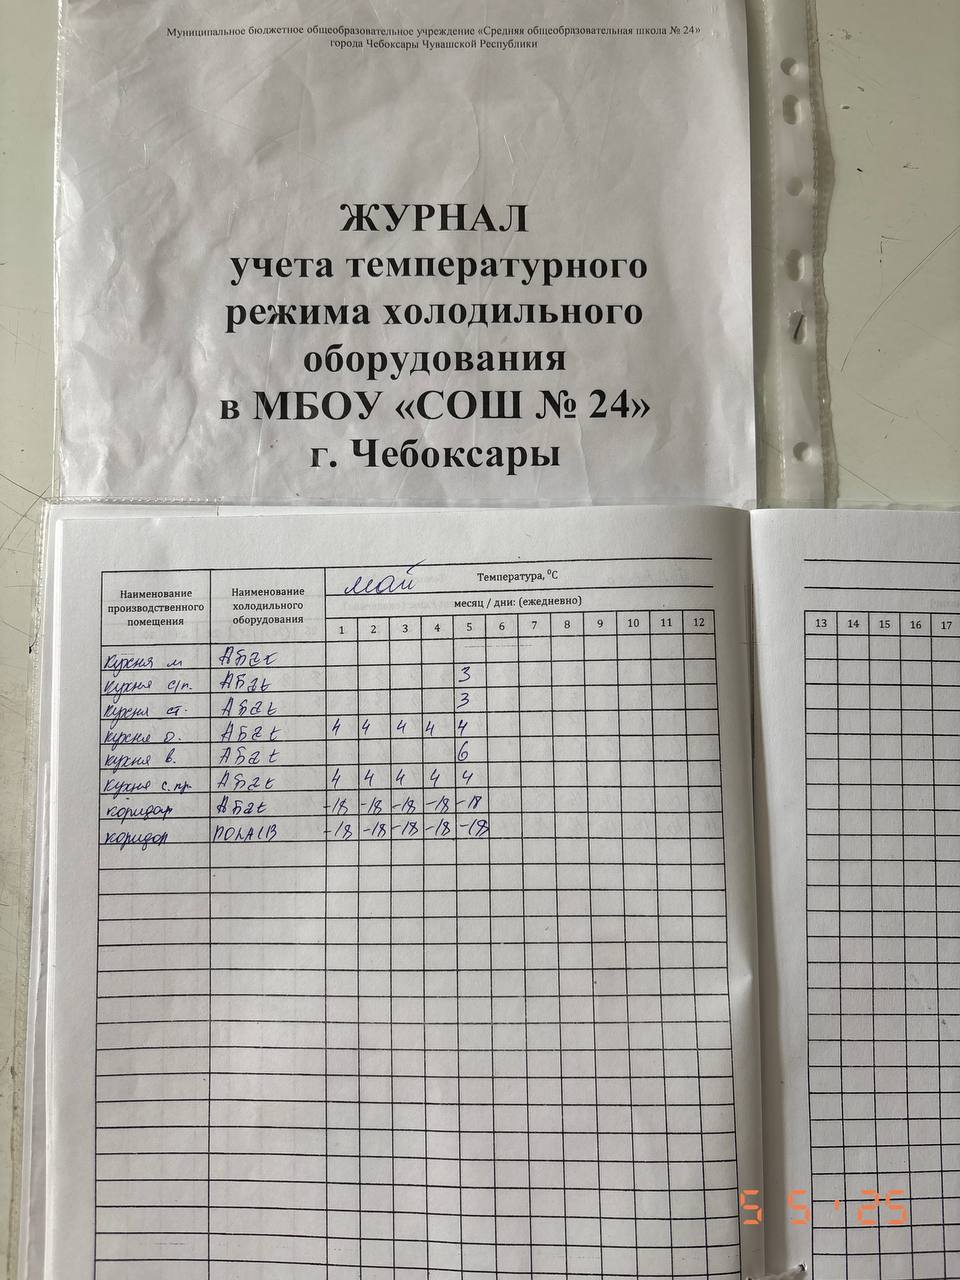 Муниципальное бюджетное общеобразовательное учреждение «Средняя общеобразовательная школа № 24»
города Чебоксары Чувашской Республики
ЖУРНАЛ
учета температурного
режима холодильного
оборудования
в МБОУ «СОШ № 24»
г. Чебоксары
Наименование производственного помещения
Наименование холодильного оборудования
май Температура, ⁰С
месяц / дни: (ежедневно)
1 2 3 4 5 6 7 8 9 10 11 12 13 14 15 16 17
Кухня м АБat
Кухня с/п. АБat 3
Кухня ст. АБat 3
Кухня о. АБat 4 4 4 4 4
Кухня в. АБat 6
Кухня с.пр. АБat 4 4 4 4 4
коридор АБat -18 -18 -18 -18 -18
коридор POLAIR -18 -18 -18 -18 -18
5 5 ' 25